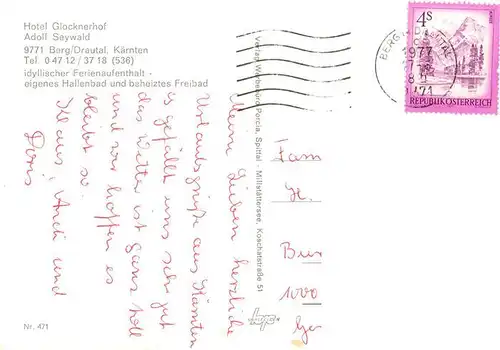 Hotel Glocknerhof
Adolf Seywald
9771 Berg/Drautal, Kärnten
Tel. 0 47 12 / 37 18 (536)
idyllischer Ferienaufenthalt -
eigenes Hallenbad und beheiztes Freibad
4s
REPUBLIK ÖSTERREICH
BERG
9771
Verlag Porcia, Spittal - Millstättersee, Koschatstraße 51
Meine Lieben herzliche
Urlaubsgrüße aus Kärnten
es gefällt uns sehr gut
das Wetter ist ganz toll
und wir hoffen es
bleibt so.
Klaus, Andi und
Doris
Fam
H.
1000
Nr. 471